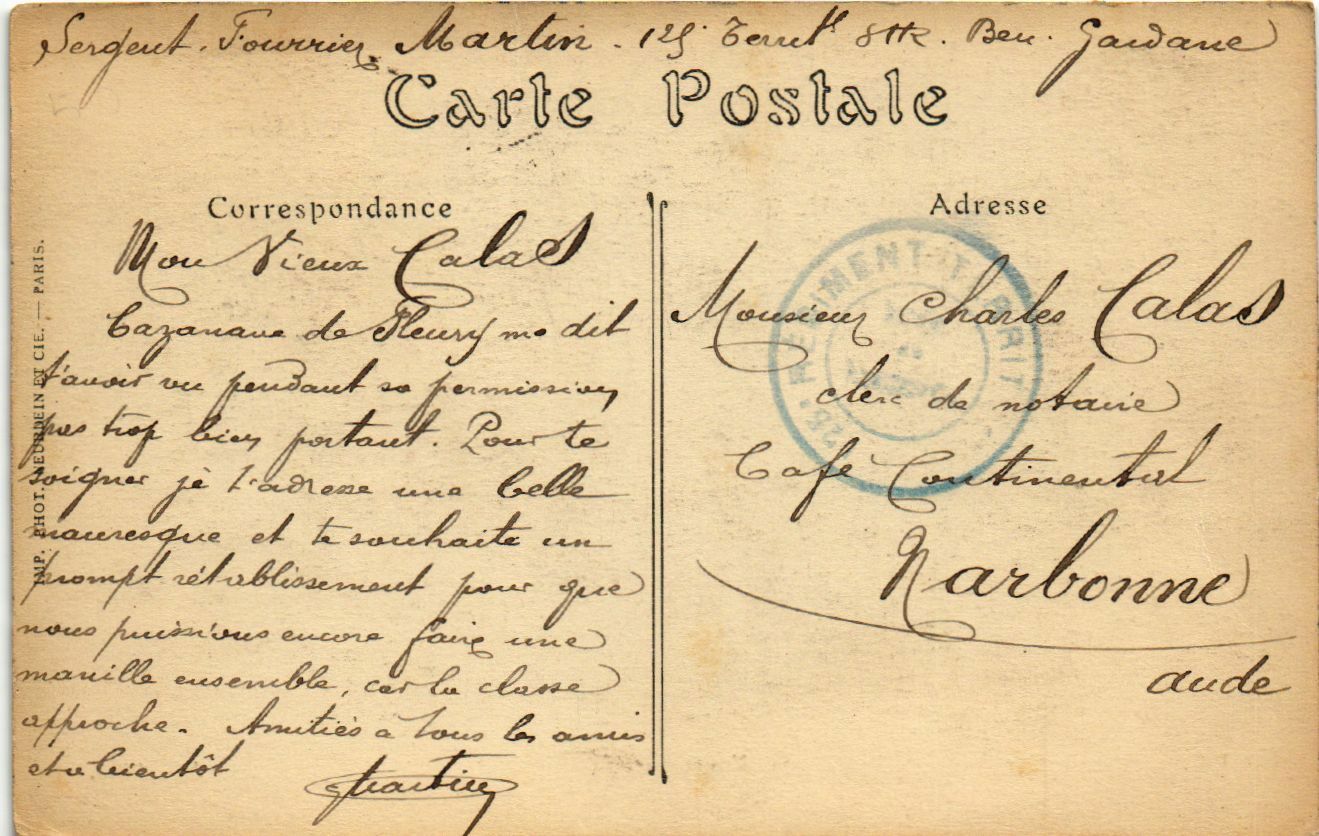 Sergent. Fourrier Martin. 125 Territ. Ben. Gardane
Carte Postale
Correspondance
Adresse
Mon Vieux Calas
Cazanave de Fleury me dit
t'avoir vu pendant sa permission
pas trop bien portant. Pour te
soigner je t'adresse une belle
mauresque et te souhaite un
prompt rétablissement pour que
nous puissions encore faire une
manille ensemble, car la classe
approche. Amitiés à tous les amis
et à bientôt
Martin
Monsieur Charles Calas
clerc de notaire
Café Continental
Narbonne
Aude
REGIMENT TERRIT
IMP. PHOT. NEURDEIN ET CIE. — PARIS.